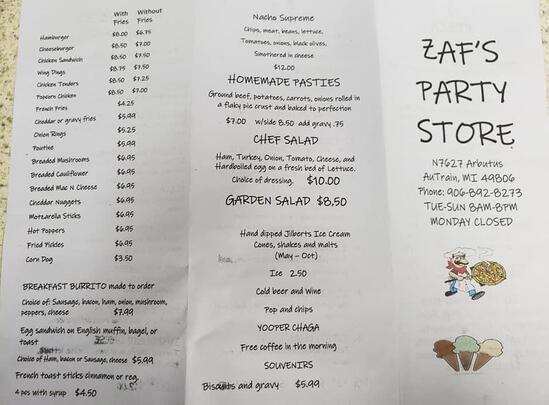 With Without
Fries Fries
Hamburger $8.00 $6.75
Cheeseburger $8.50 $7.00
Chicken Sandwich $8.50 $7.50
Wing Dings $8.75 $7.50
Chicken Tenders $8.50 $7.25
Popcorn Chicken $8.50 $7.00
French Fries $4.25
Cheddar or gravy fries $5.99
Onion Rings $5.25
Poutine $5.99
Breaded Mushrooms $6.95
Breaded Cauliflower $6.95
Breaded Mac N Cheese $6.95
Cheddar Nuggets $6.95
Mozzarella Sticks $6.95
Hot Poppers $6.95
Fried Pickles $6.95
Corn Dog $3.50
BREAKFAST BURRITO made to order
Choice of: Sausage, bacon, ham, onion, mushroom,
peppers, cheese $7.99
Egg sandwich on English muffin, bagel, or
toast
Choice of Ham, bacon or Sausage, cheese $5.99
French toast sticks cinnamon or reg.
4 pcs with syrup $4.50
Nacho Supreme
Chips, meat, beans, lettuce,
Tomatoes, onions, black olives,
Smothered in cheese
$12.00
HOMEMADE PASTIES
Ground beef, potatoes, carrots, onions rolled in
a flaky pie crust and baked to perfection
$7.00 w/side 8.50 add gravy .75
CHEF SALAD
Ham, Turkey, Onion, Tomato, Cheese, and
Hardboiled egg on a fresh bed of Lettuce.
Choice of dressing. $10.00
GARDEN SALAD $8.50
Hand dipped Jilberts Ice Cream
Cones, shakes and malts
(May - Oct)
Ice 2.50
Cold beer and Wine
Pop and chips
YOOPER CHAGA
Free coffee in the morning
SOUVENIRS
Biscuits and gravy $5.99
ZAF'S
PARTY
STORE
N7627 Arbutus
AuTrain, MI 49806
Phone: 906-892-8273
TUE-SUN 8AM-8PM
MONDAY CLOSED